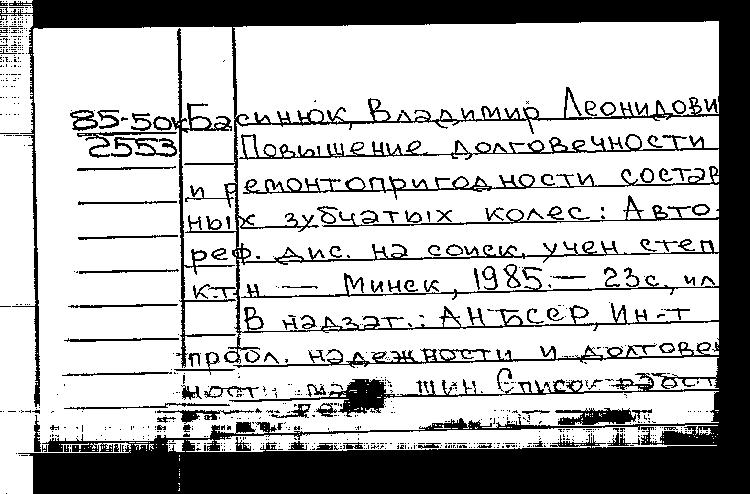 85-50к Басинюк, Владимир Леонидови
2553 Повышение долговечности
и ремонтопригодности состав
ных зубчатых колес: Авто-
реф. дис. на соиск. учен. степ
к.т.н — Минск, 1985.— 23с., ил
В надзаг.: АН БССР, Ин-т
пробл. надежности и долгове
ности шин. Список работ